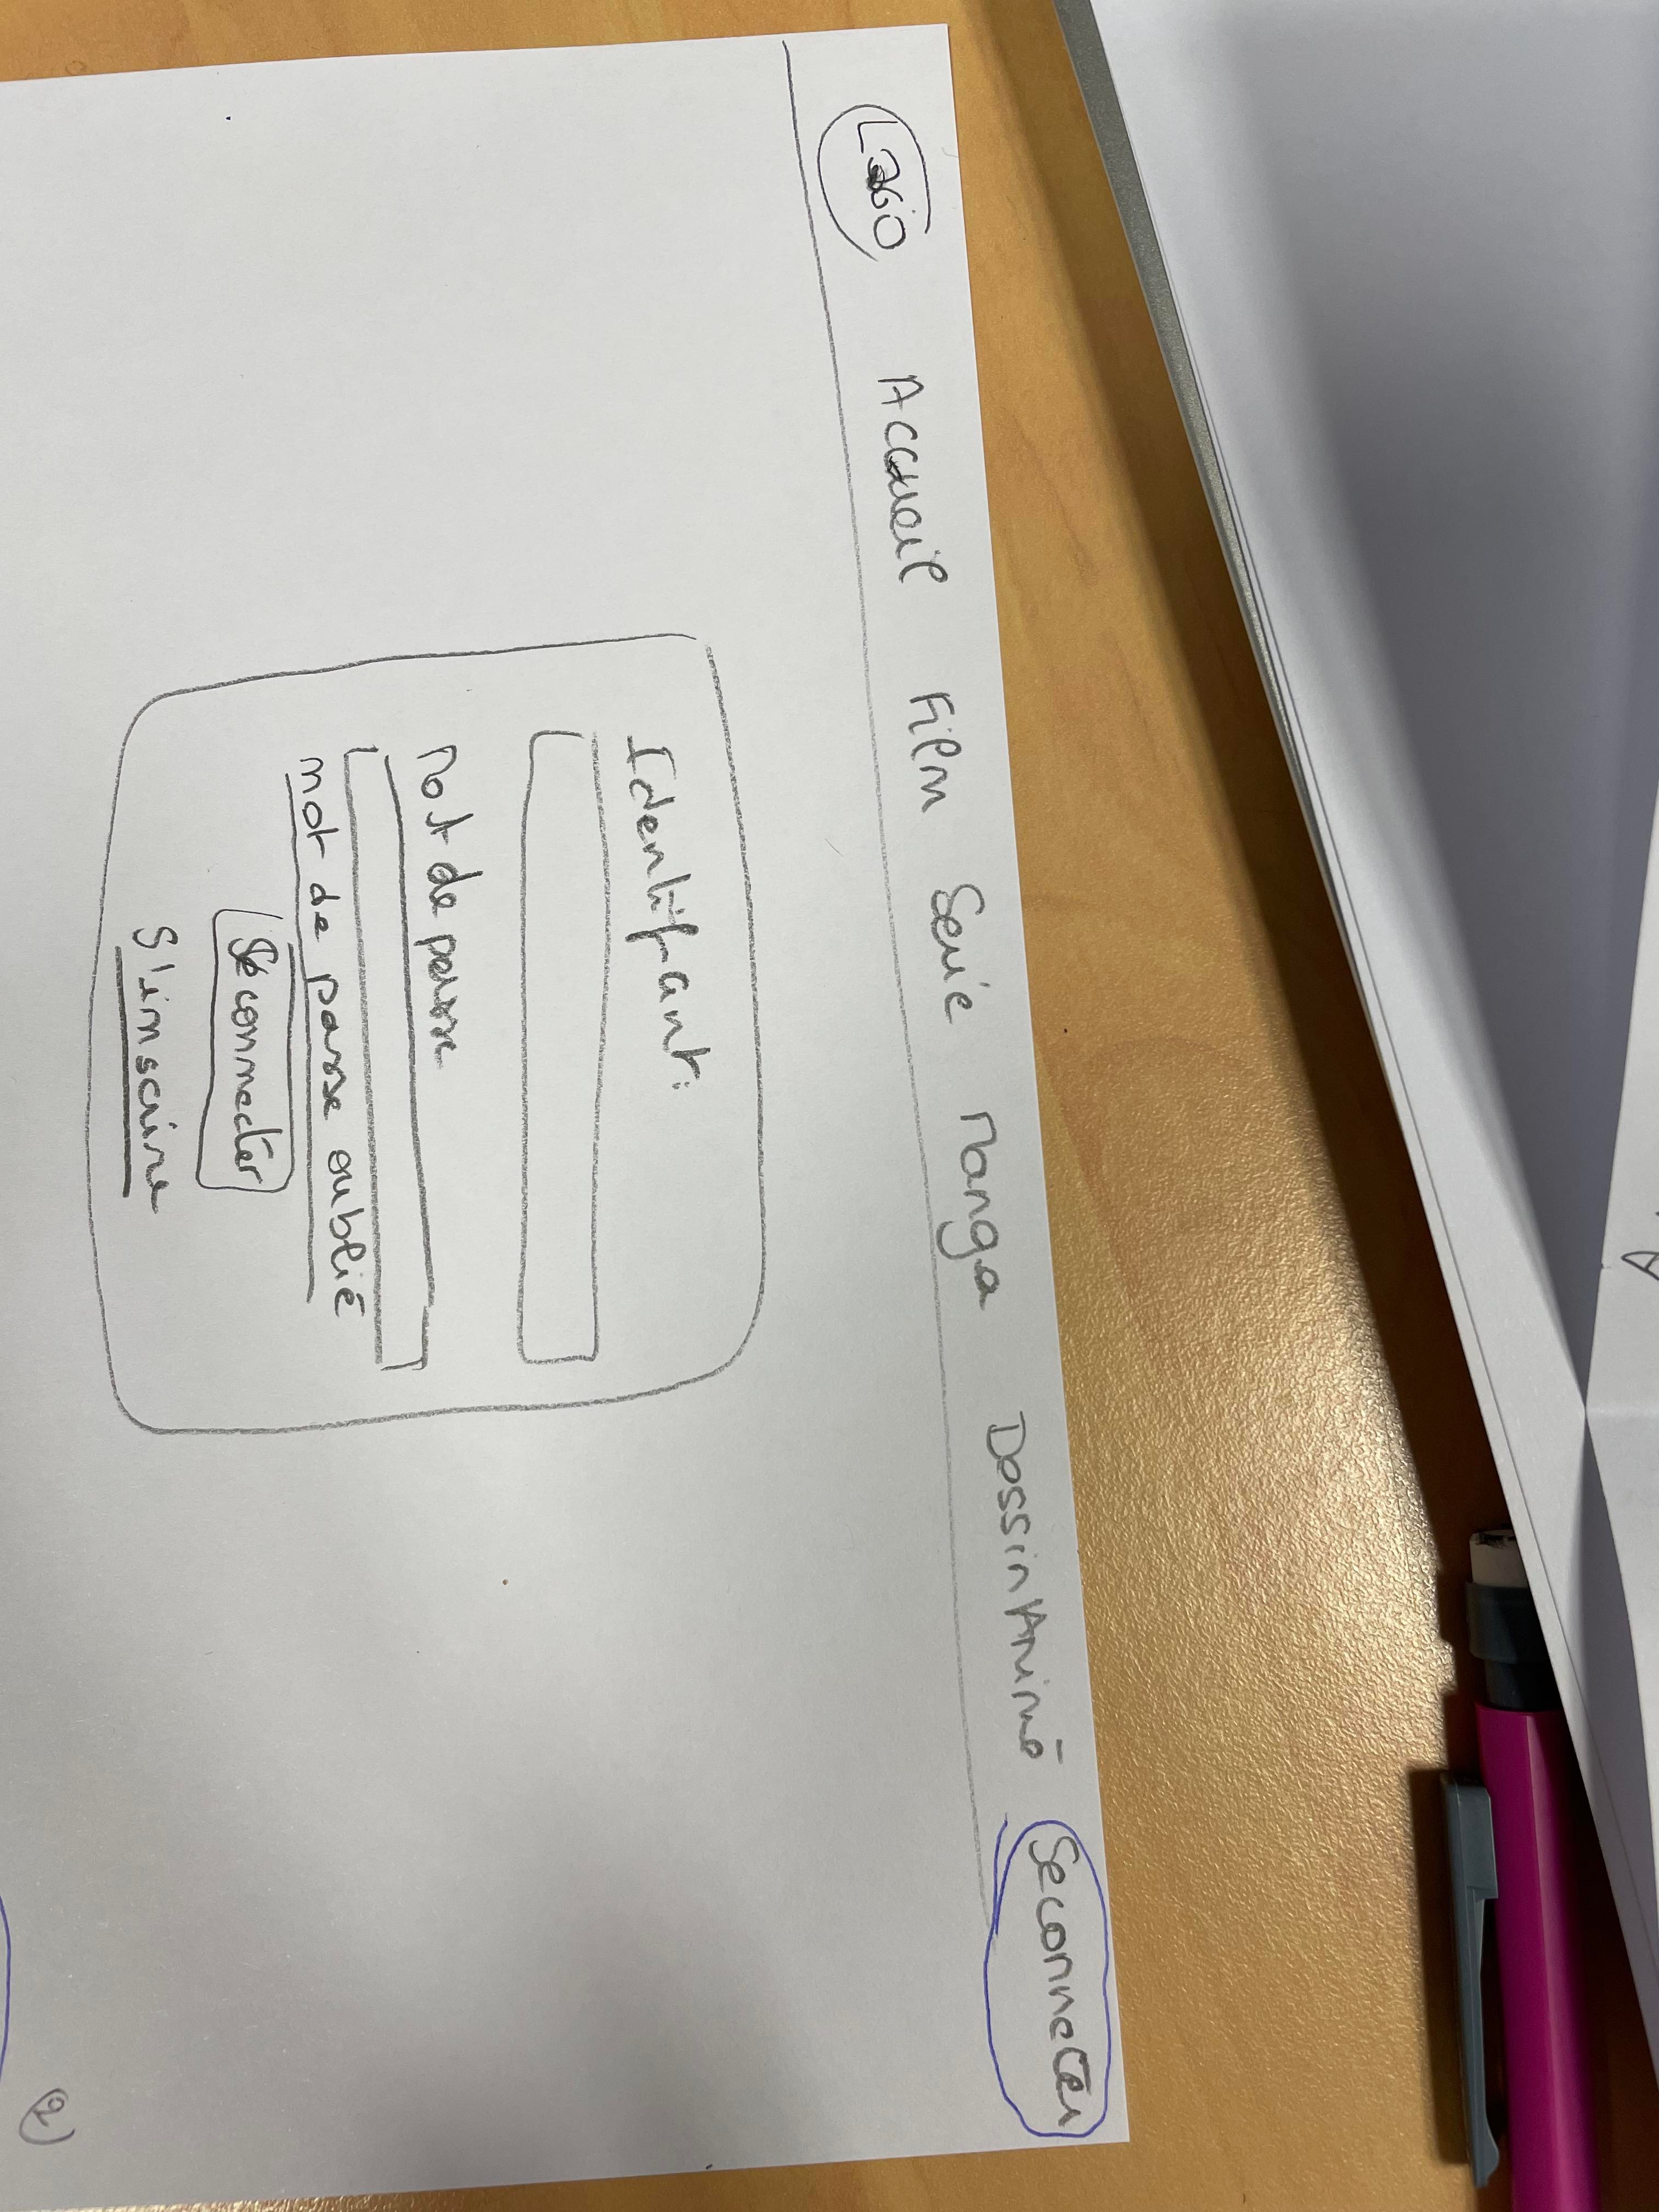 Logo Accueil Film Serie Manga Dessin Animé Se connecter
Identifiant:
Mot de passe
mot de passe oublié
Se connecter
S'inscrire
2